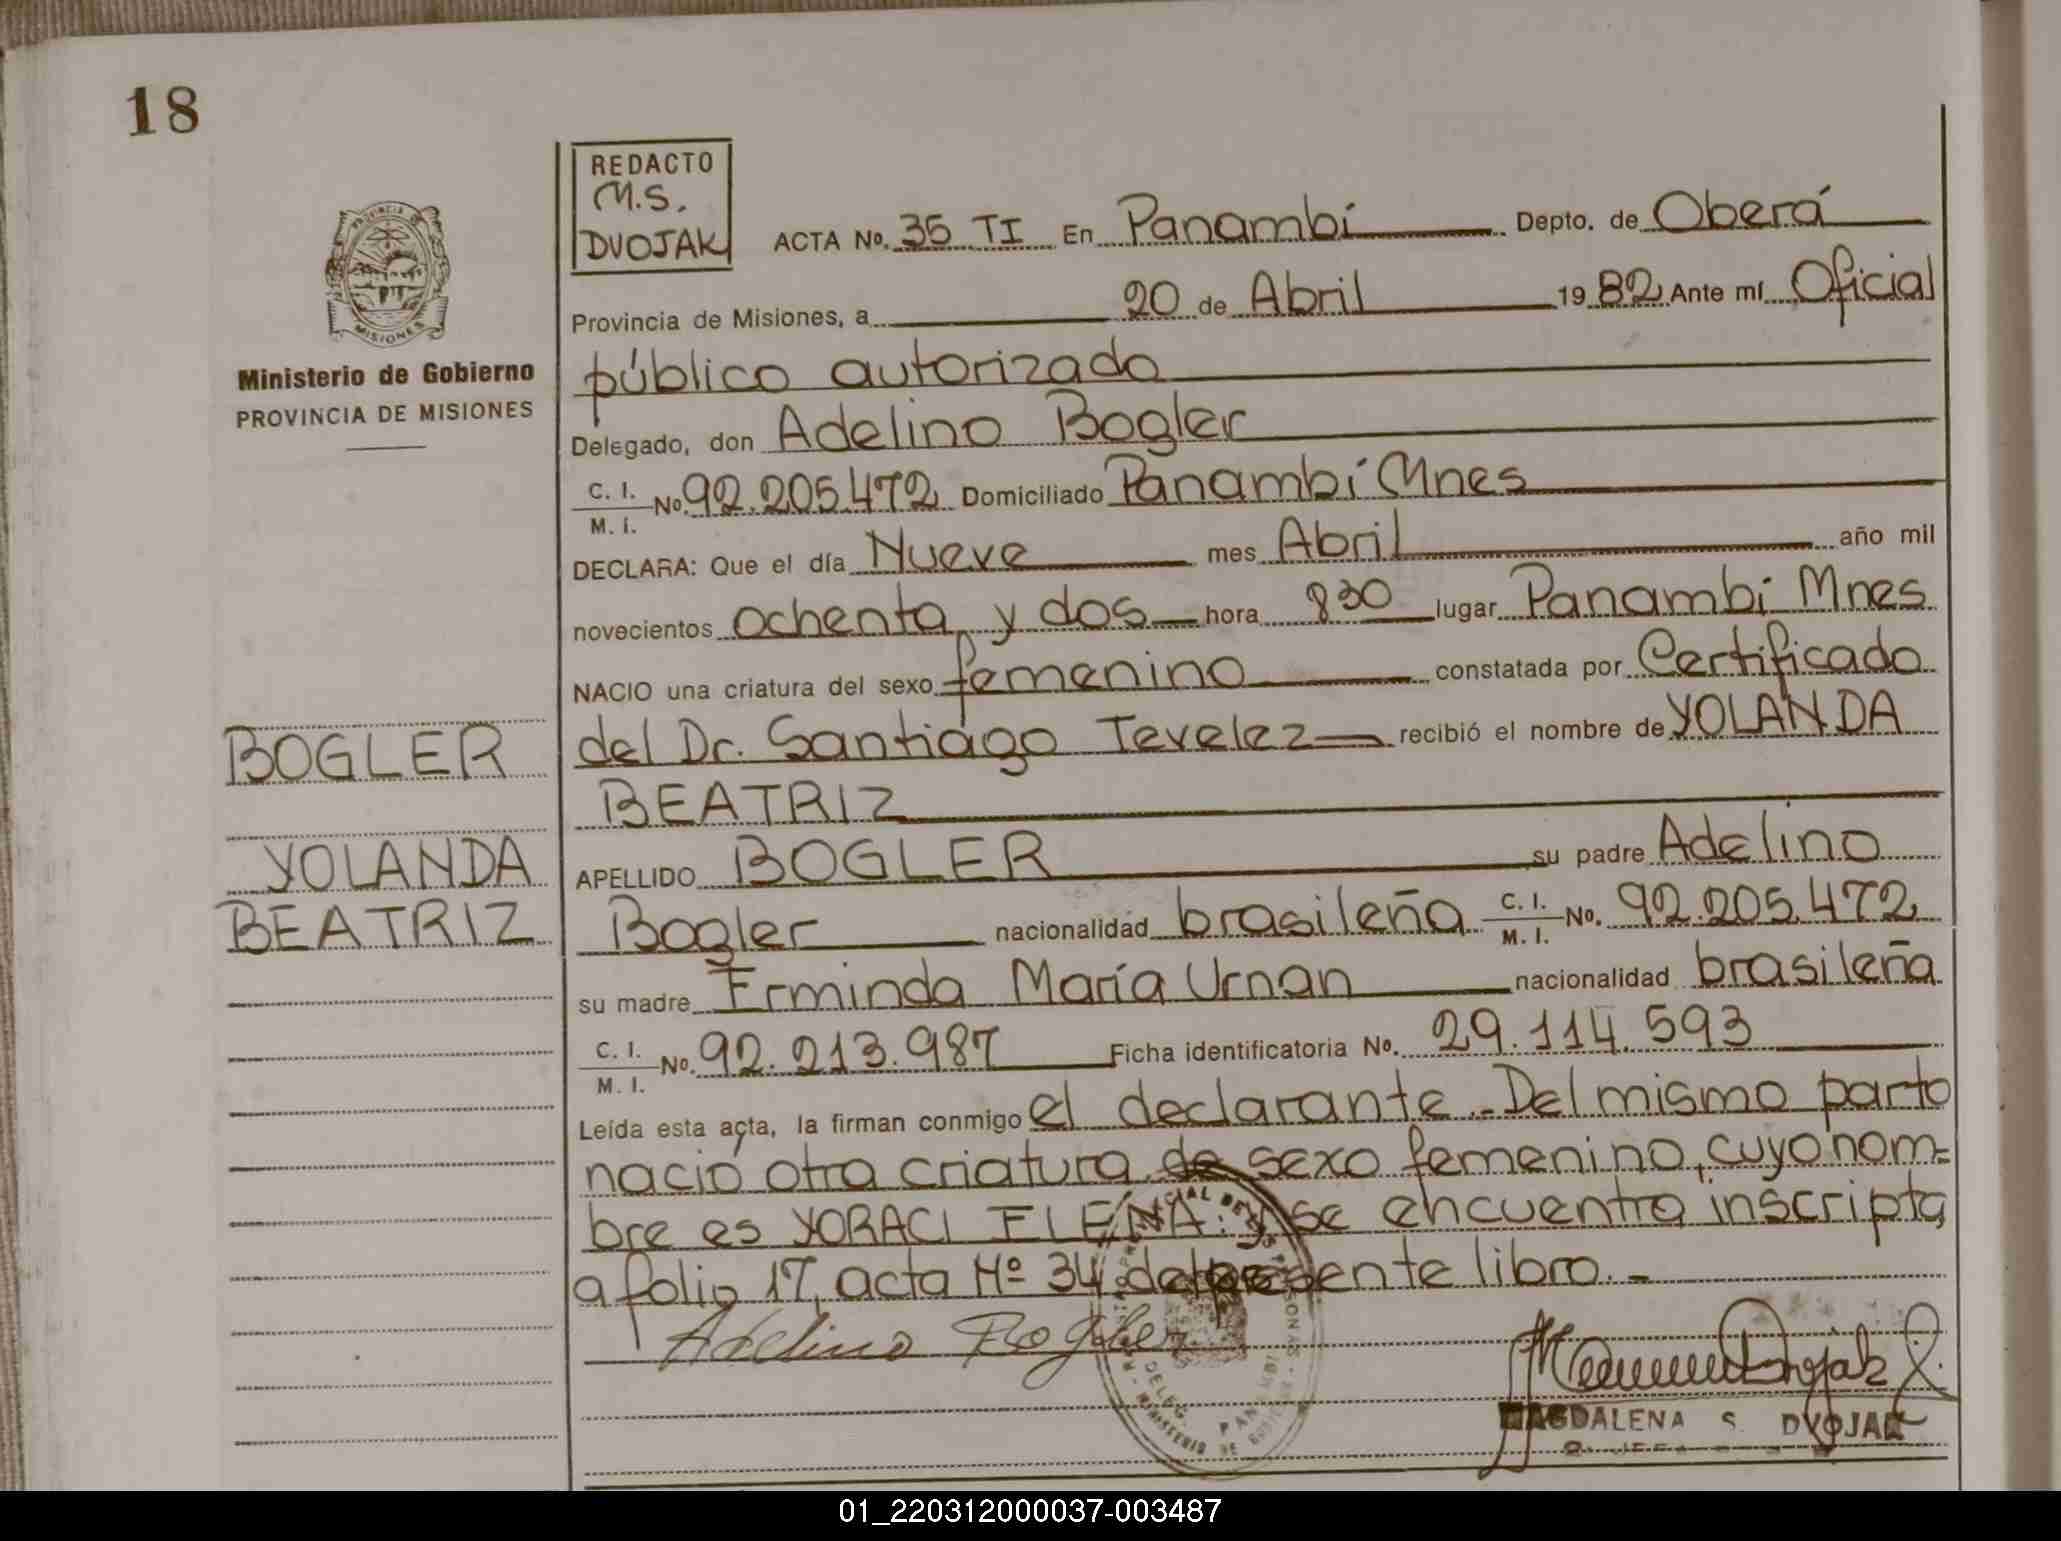 18
REDACTO
M.S.
DVOJAK
ACTA No. 35 TI En Panambí Depto. de Oberá
Provincia de Misiones, a 20 de Abril 1982 Ante mí Oficial
público autorizado
Delegado, don Adelino Bogler
C. I. M. I. No. 92.205.472 Domiciliado Panambí Mnes
DECLARA: Que el día Nueve mes Abril año mil
novecientos ochenta y dos hora 8 30 lugar Panambí Mnes
NACIO una criatura del sexo femenino constatada por Certificado
del Dr. Santiago Tevelez recibió el nombre de YOLANDA
BEATRIZ
APELLIDO BOGLER su padre Adelino
Bogler nacionalidad brasileña C. I. M. I. No. 92.205.472
su madre Erminda María Urnan nacionalidad brasileña
C. I. M. I. No. 92.213.987 Ficha identificatoria No. 29.114.593
Leída esta acta, la firman conmigo el declarante.-Del mismo parto
nació otra criatura de sexo femenino, cuyo nom=
bre es YORACI ELENA. y se encuentra inscripta
a folio 17, acta Nº 34 del presente libro.-
Adelino Bogler
MAGDALENA S. DVOJAK
PROVINCIA DE
MISIONES
Ministerio de Gobierno
PROVINCIA DE MISIONES
BOGLER
YOLANDA
BEATRIZ
01_220312000037-003487